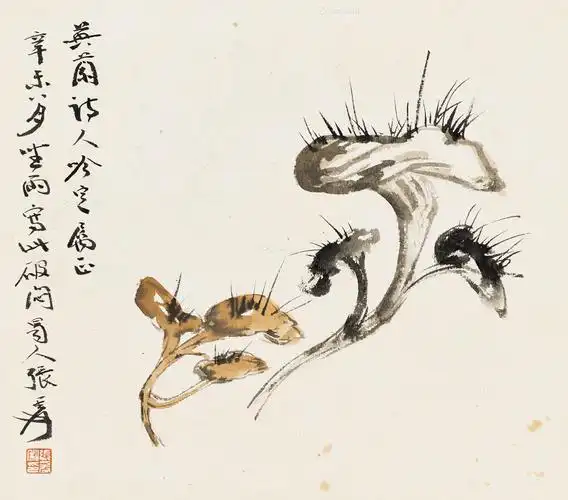 英蘭詩人吟定屬正
辛未八月坐雨寫此破悶蜀人張爰